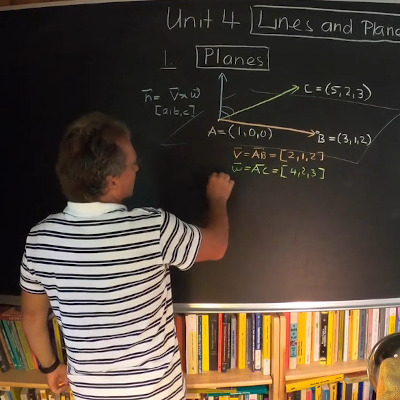 Unit 4 Lines and Plane
1. Planes
C = (5,2,3)
n = v x w
[a,b,c]
A = (1,0,0)
B = (3,1,2)
v = AB = [2,1,2]
w = AC = [4,2,3]